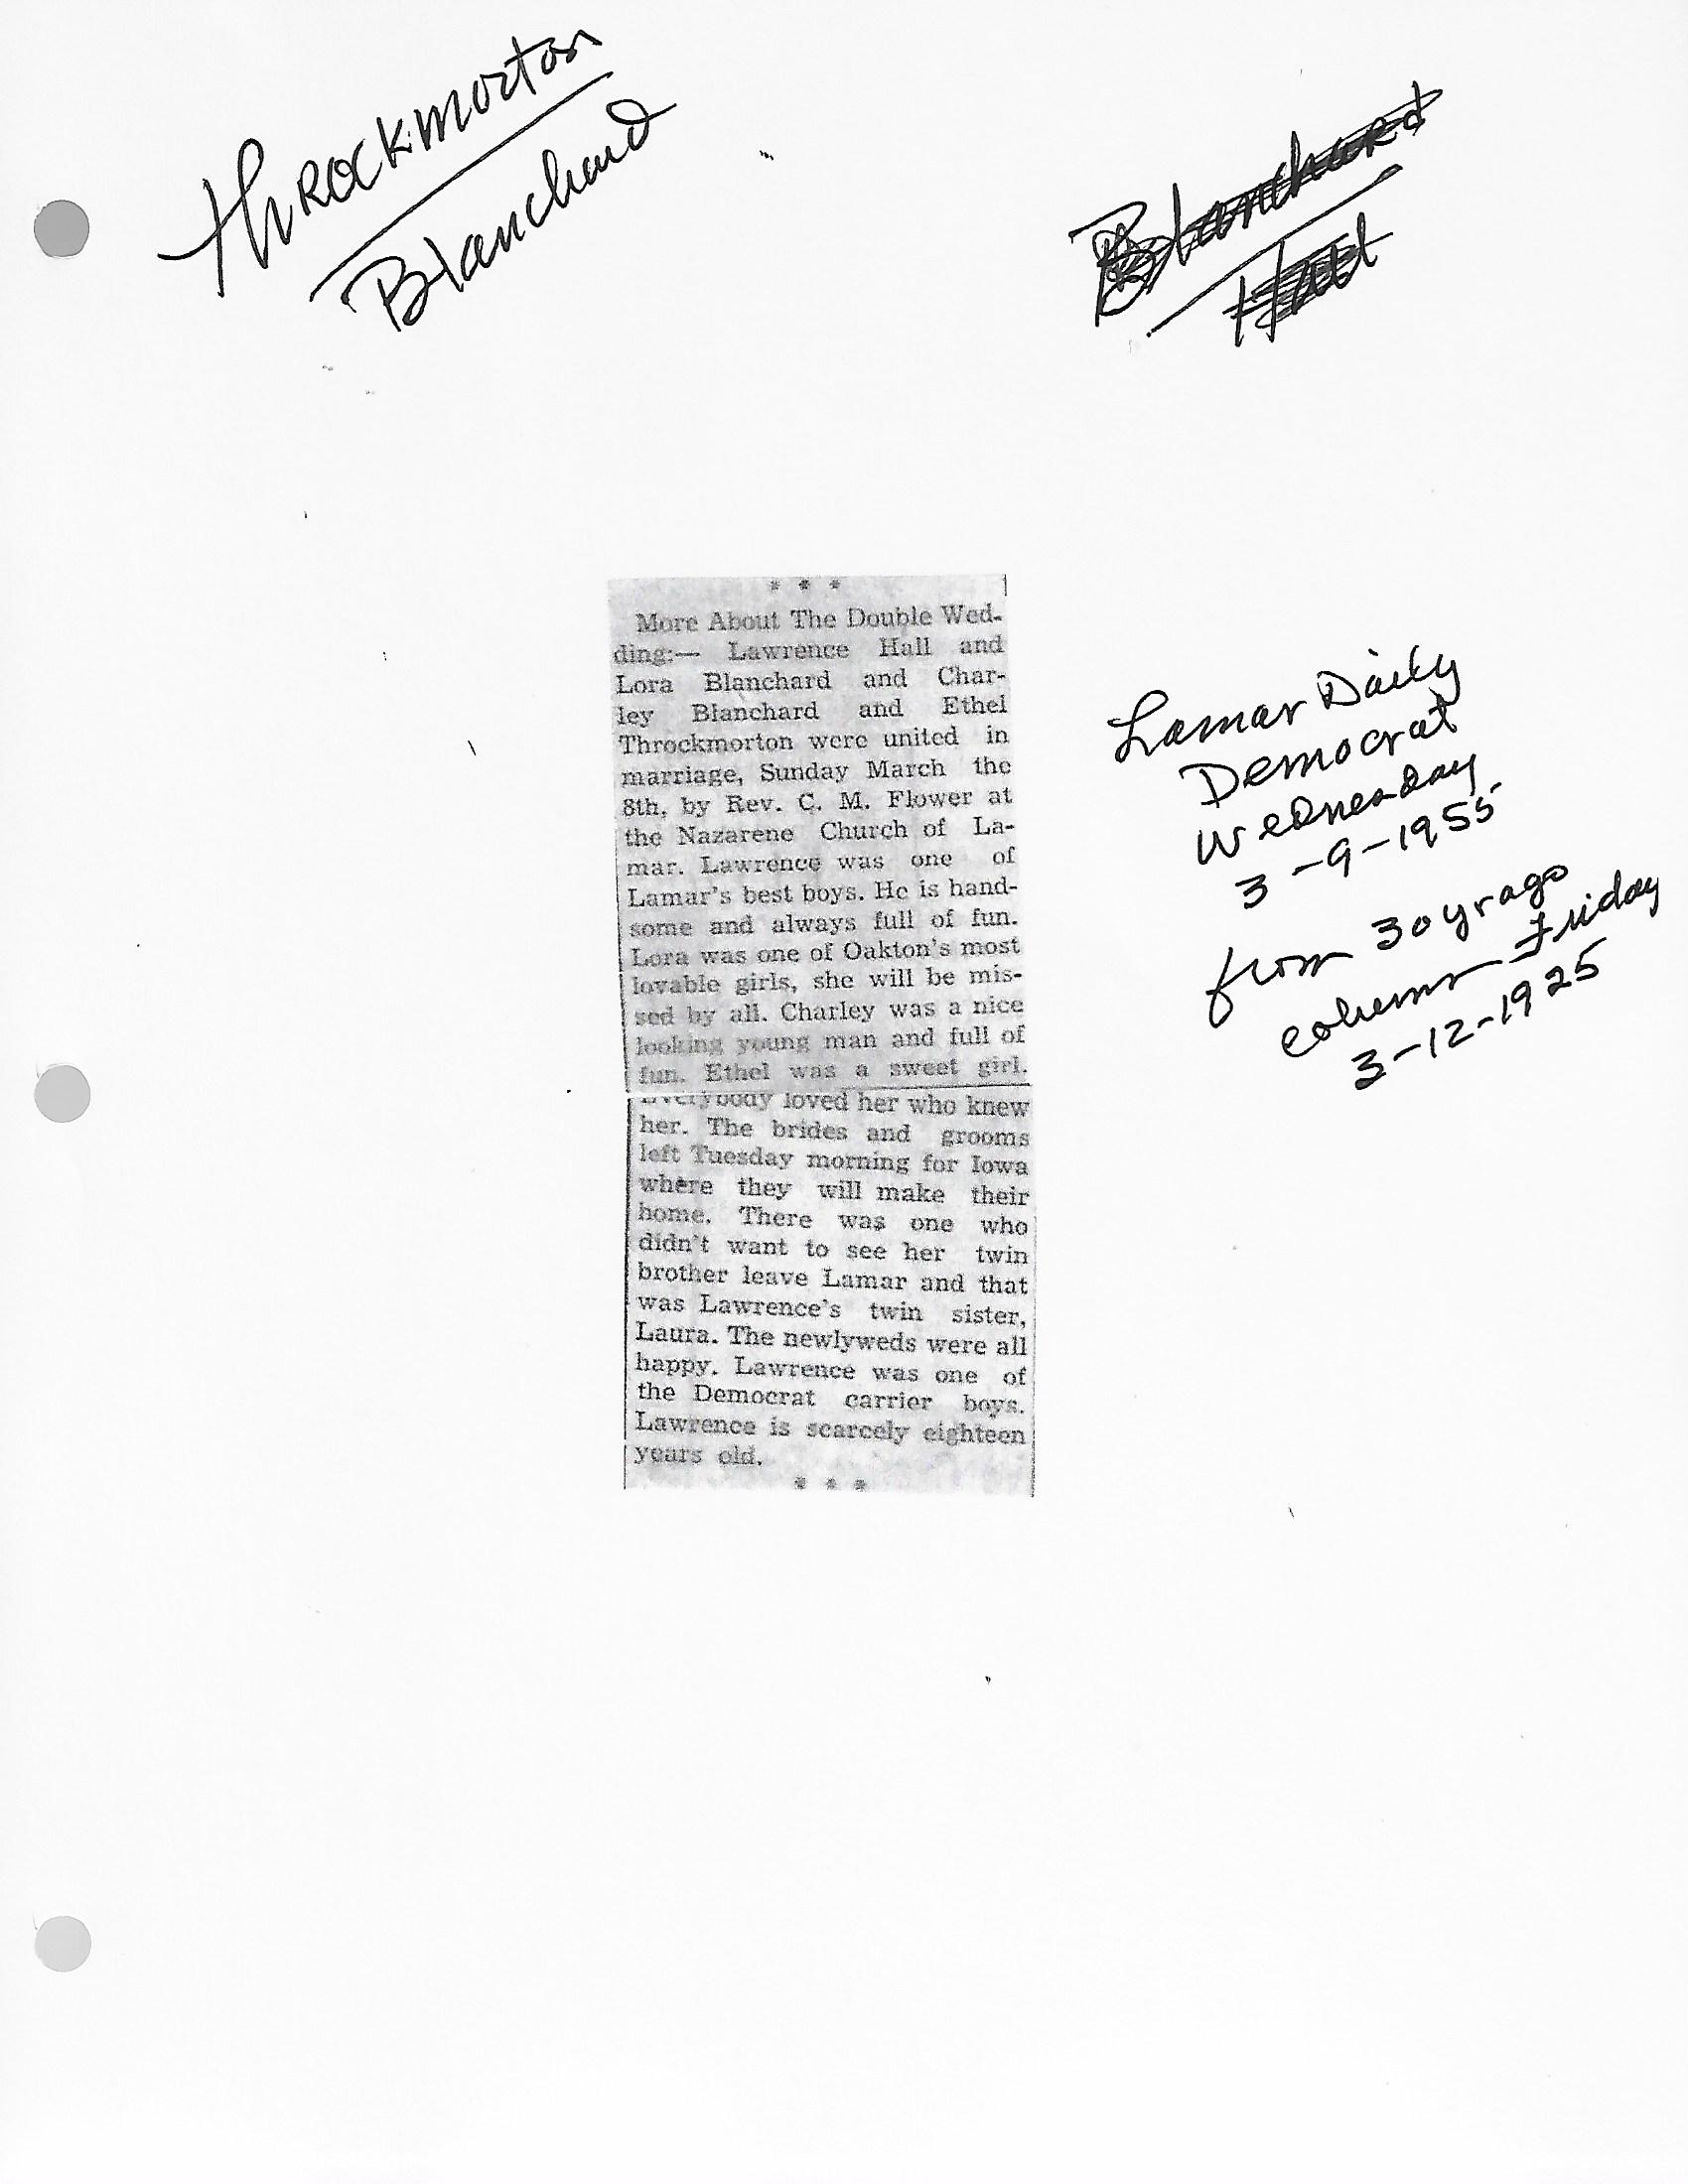 ThRockmorton
Blanchard
Blanchard
Hall
* * *
More About The Double Wed-
ding:— Lawrence Hall and
Lora Blanchard and Char-
ley Blanchard and Ethel
Throckmorton were united in
marriage, Sunday March the
8th, by Rev. C. M. Flower at
the Nazarene Church of La-
mar. Lawrence was one of
Lamar's best boys. He is hand-
some and always full of fun.
Lora was one of Oakton's most
lovable girls, she will be mis-
sed by all. Charley was a nice
looking young man and full of
fun. Ethel was a sweet girl.
Everybody loved her who knew
her. The brides and grooms
left Tuesday morning for Iowa
where they will make their
home. There was one who
didn't want to see her twin
brother leave Lamar and that
was Lawrence's twin sister,
Laura. The newlyweds were all
happy. Lawrence was one of
the Democrat carrier boys.
Lawrence is scarcely eighteen
years old.
* * *
Lamar Daily
Democrat
Wednesday
3-9-1955
from 30 yr ago
column Friday
3-12-1925